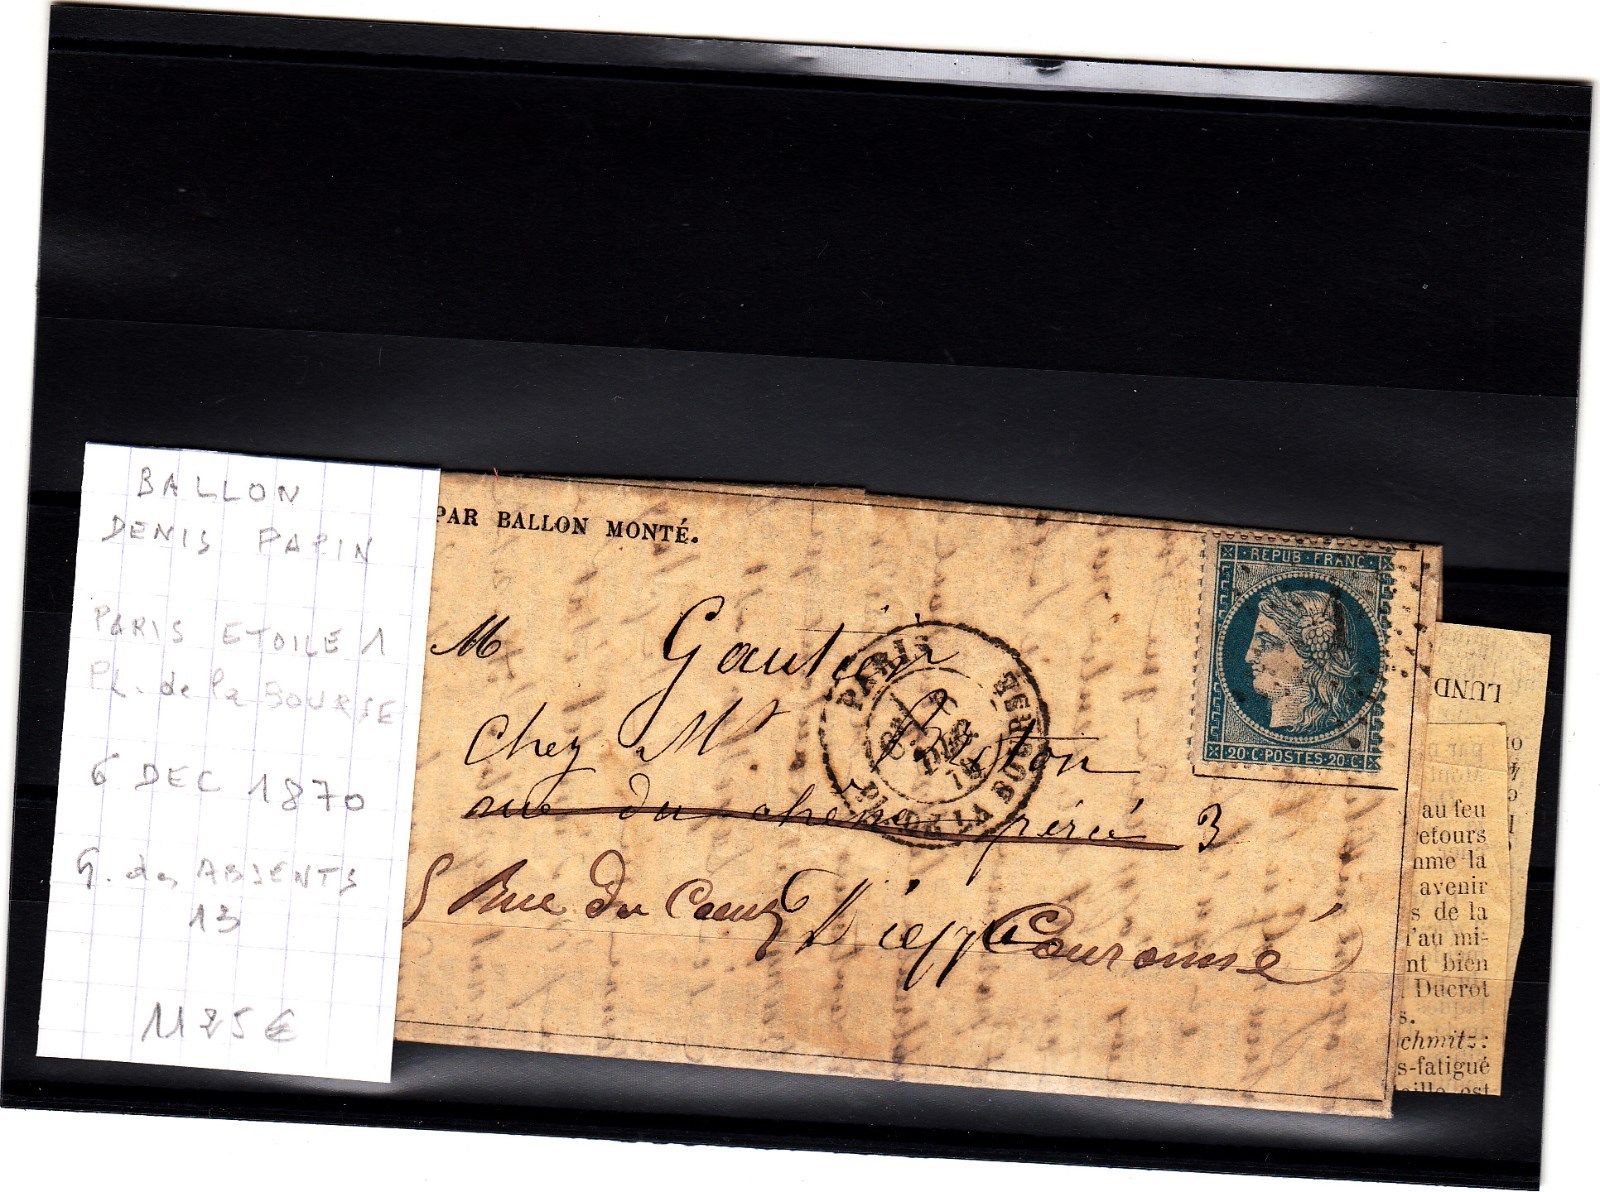 BALLON
DENIS PAPIN
PARIS ETOILE 1
Pl. de la BOURSE
6 DEC 1870
G. des ABSENTS
13
1125€
PAR BALLON MONTÉ.
M Gautier
chez Mr
rue du chêne percé 3
Dieppe
5 Rue du Coeur Couronné
PARIS
6 DEC.
PL. DE LA BOURSE
REPUB·FRANC·
1
20·C·POSTES·20·C·
LUND
au feu
etours
nme la
avenir
s de la
l'au mi-
nt bien
. Ducrot
s.
chmitz:
s-fatigué
aille est